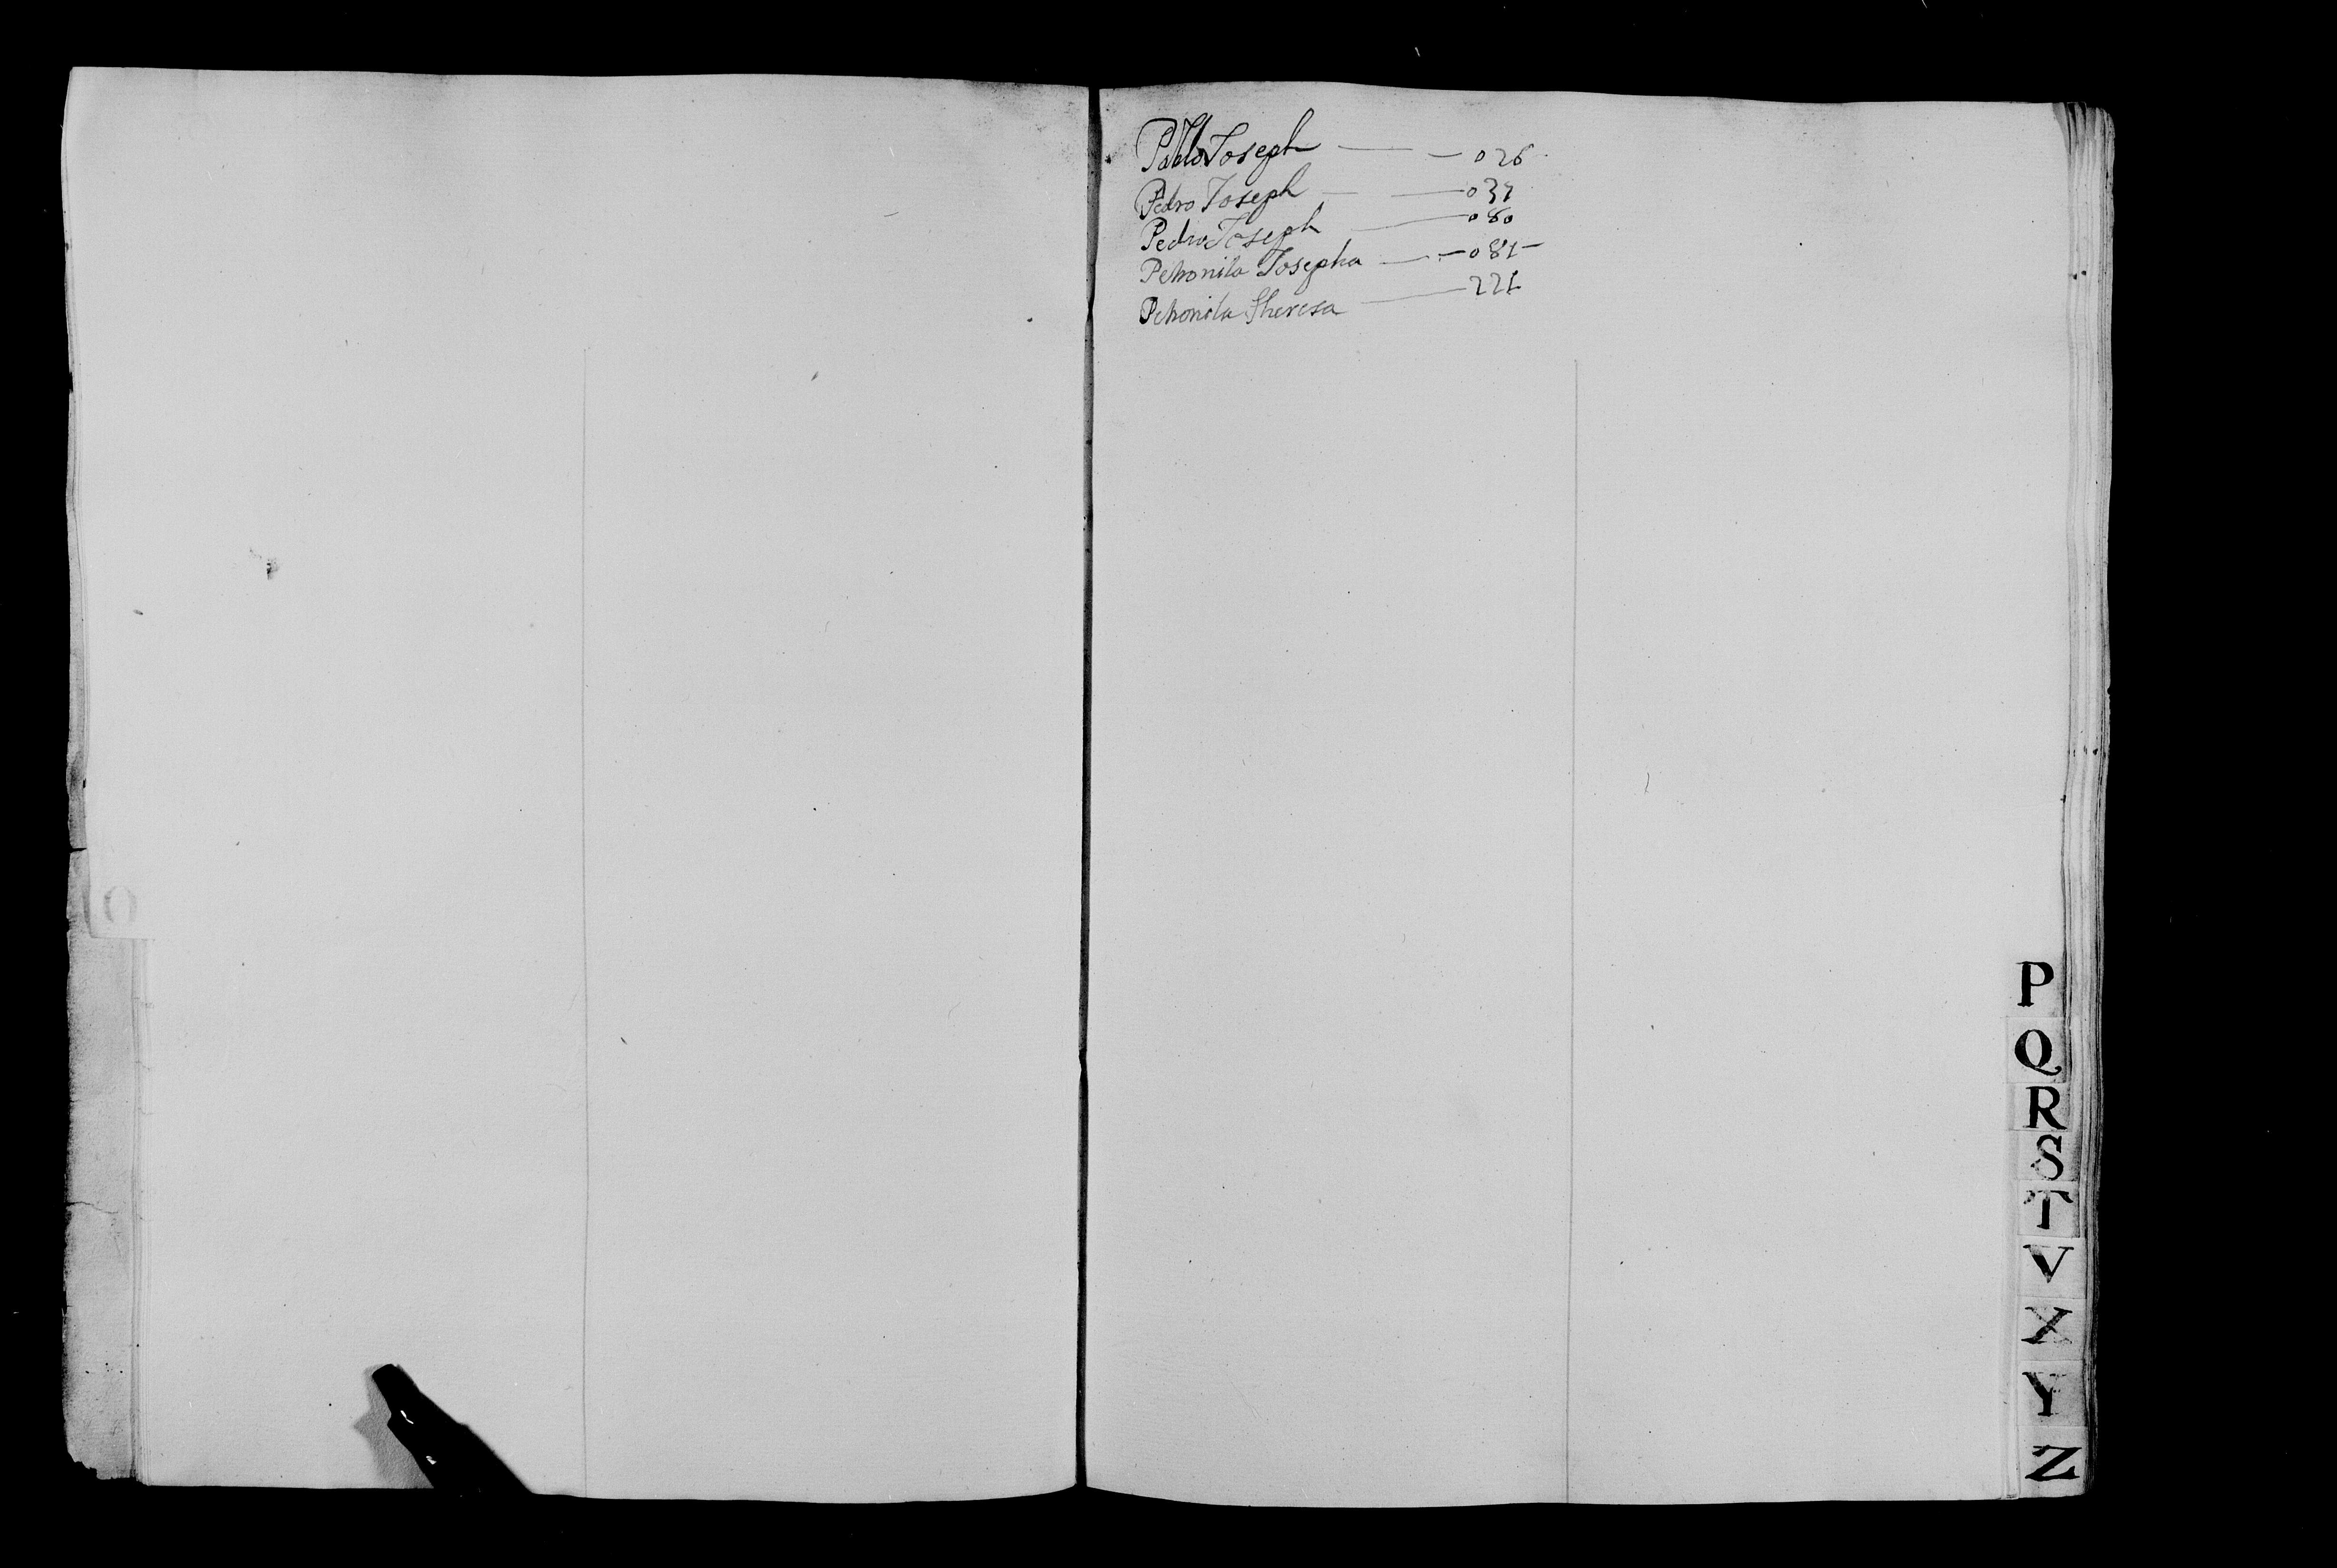 Pablo Joseph — — 026
Pedro Joseph — — 037
Pedro Joseph — 080
Petronila Josepha — — 081 —
Petronila Theresa — 221
P
Q
R
S
T
V
X
Y
Z